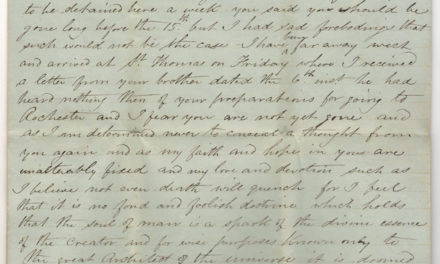 to be detained here a week you said you should be
gone long before the 15th but I had sad forebodings that
such would not be the case I have being far away west
and arrived at St Thomas on Friday where I received
a letter from your brother dated the 6th inst he had
heard nothing then of your preparations for going to
Rochester and I fear you are not yet gone and
as I am determined never to conceal a thought from
you again and as my faith and hope in yours are
unalterably fixed and my love and devotion such as
I believe not even death will quench for I feel
that it is no fond and foolish doctrine which holds
that the soul of man is a spark of the divine essence
of the Creator and for wise purposes known only to
the great Architect of the universe it is doomed